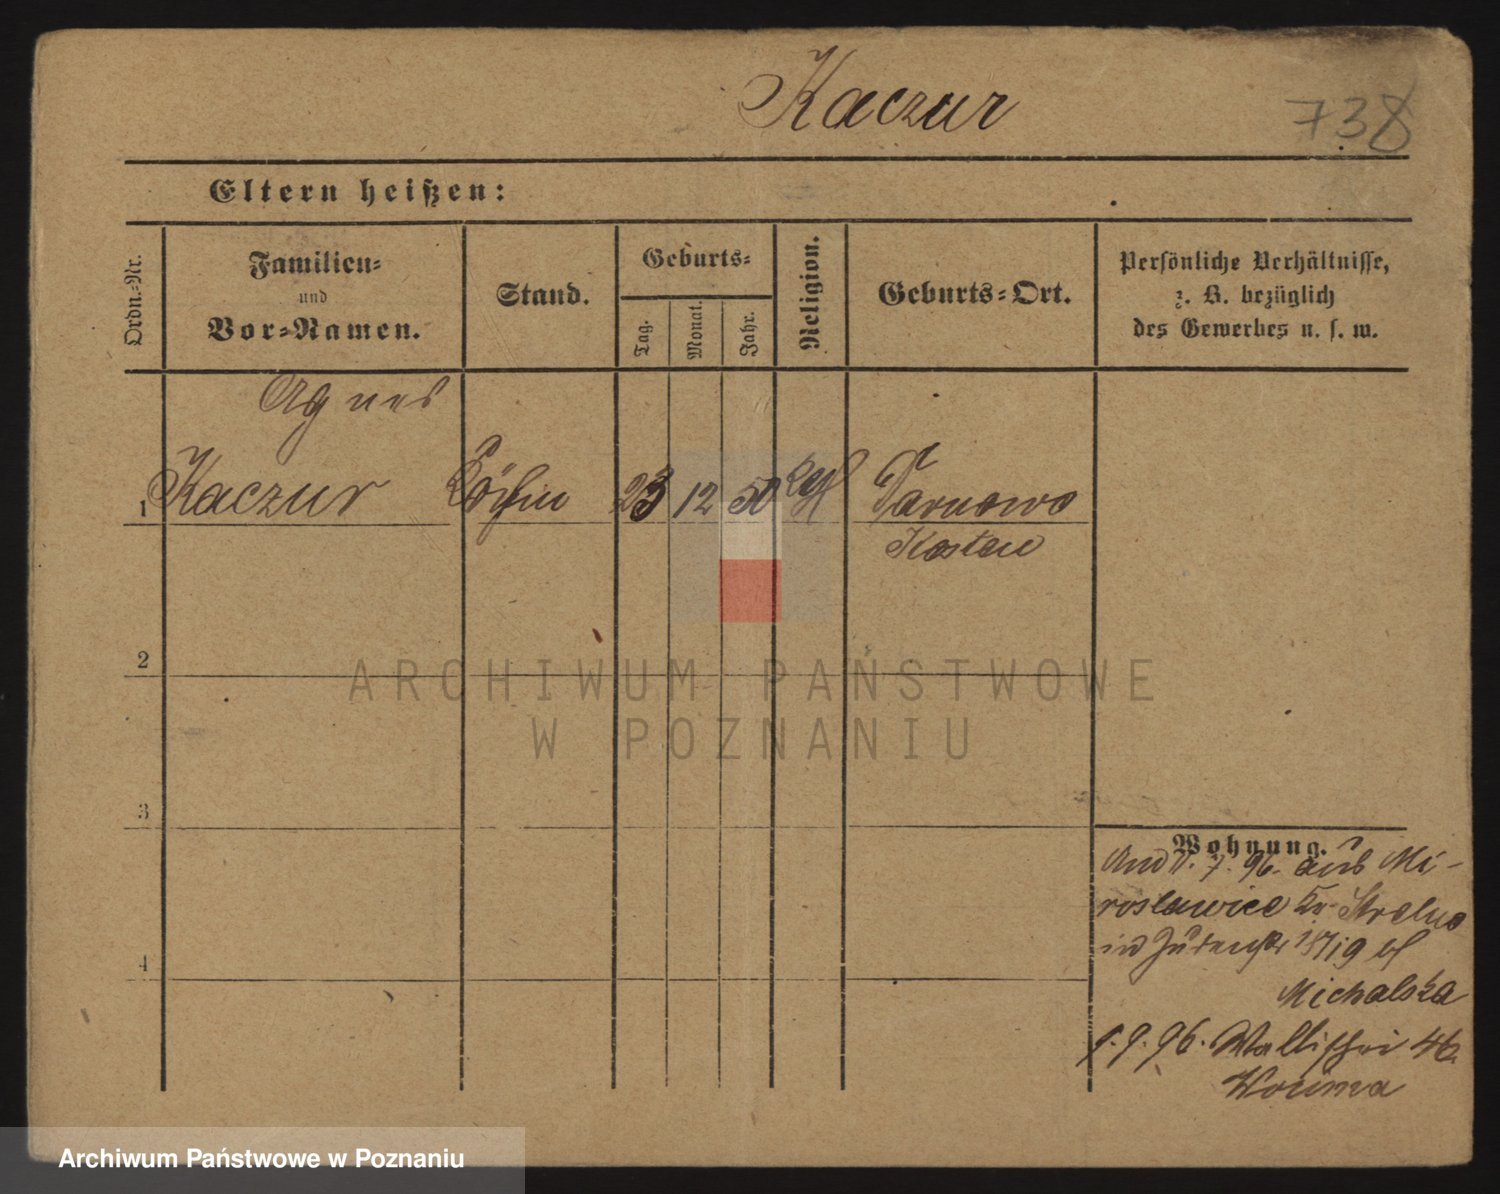 Kaczur
738
Eltern heißen:
Ordn.-Nr.
Familien-
und
Vor-Namen.
Stand.
Geburts-
Tag.
Monat.
Jahr.
Religion.
Geburts-Ort.
Persönliche Verhältnisse,
z. B. bezüglich
des Gewerbes u. s. w.
Agnes
1 Kaczur Köchin 23 12 50 Tarnowo
Kosten
2
3
4
Wohnung.
7. 96. aus Mi-
roslawice Kr. Strelno
in Judenstr 18/19 bf
Michalska
1. 9. 96. Wallischei 46
ARCHIWUM PAŃSTWOWE
W POZNANIU
Archiwum Państwowe w Poznaniu